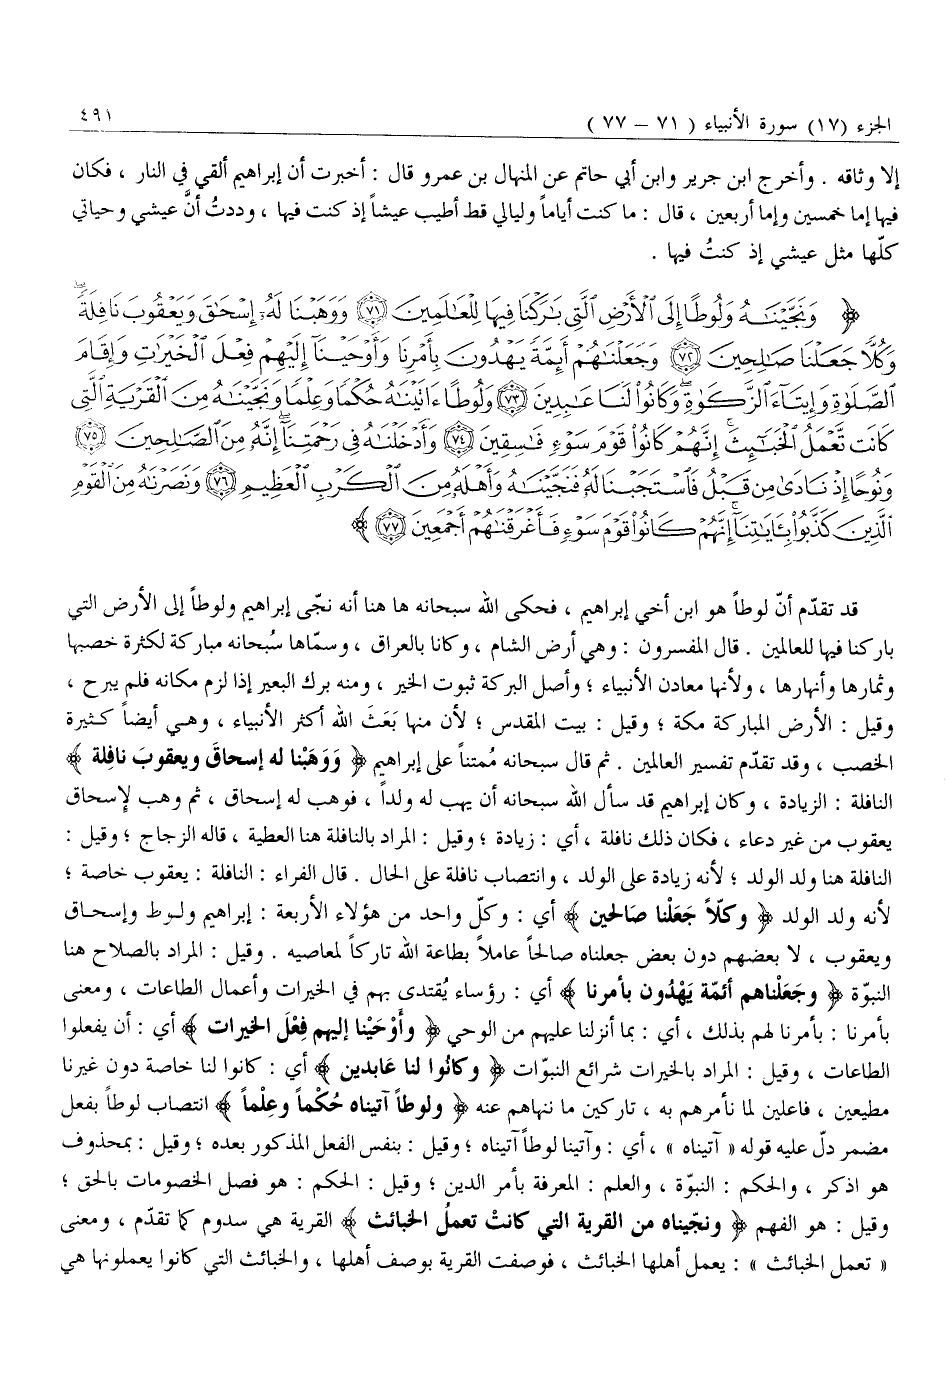 الجزء (١٧) سورة الأنبياء ( ٧١ – ٧٧ ) ٤٩١
إلا وثاقه . وأخرج ابن جرير وابن أبي حاتم عن المنهال بن عمرو قال : أخبرت أن إبراهيم ألقي في النار ، فكان
فيها إما خمسين وإما أربعين ، قال : ما كنت أياماً وليالي قط أطيب عيشاً إذ كنت فيها ، وددتُ أنَّ عيشي وحياتي
كلّها مثل عيشي إذ كنتُ فيها .
﴿ وَنَجَّيْنَٰهُ وَلُوطًا إِلَى ٱلْأَرْضِ ٱلَّتِي بَٰرَكْنَا فِيهَا لِلْعَٰلَمِينَ ﴿٧١﴾ وَوَهَبْنَا لَهُۥٓ إِسْحَٰقَ وَيَعْقُوبَ نَافِلَةً ۖ
وَكُلًّا جَعَلْنَا صَٰلِحِينَ ﴿٧٢﴾ وَجَعَلْنَٰهُمْ أَئِمَّةً يَهْدُونَ بِأَمْرِنَا وَأَوْحَيْنَآ إِلَيْهِمْ فِعْلَ ٱلْخَيْرَٰتِ وَإِقَامَ
ٱلصَّلَوٰةِ وَإِيتَآءَ ٱلزَّكَوٰةِ ۖ وَكَانُوا۟ لَنَا عَٰبِدِينَ ﴿٧٣﴾ وَلُوطًا ءَاتَيْنَٰهُ حُكْمًا وَعِلْمًا وَنَجَّيْنَٰهُ مِنَ ٱلْقَرْيَةِ ٱلَّتِي
كَانَت تَّعْمَلُ ٱلْخَبَٰٓئِثَ ۗ إِنَّهُمْ كَانُوا۟ قَوْمَ سَوْءٍ فَٰسِقِينَ ﴿٧٤﴾ وَأَدْخَلْنَٰهُ فِي رَحْمَتِنَآ ۖ إِنَّهُۥ مِنَ ٱلصَّٰلِحِينَ ﴿٧٥﴾
وَنُوحًا إِذْ نَادَىٰ مِن قَبْلُ فَٱسْتَجَبْنَا لَهُۥ فَنَجَّيْنَٰهُ وَأَهْلَهُۥ مِنَ ٱلْكَرْبِ ٱلْعَظِيمِ ﴿٧٦﴾ وَنَصَرْنَٰهُ مِنَ ٱلْقَوْمِ
ٱلَّذِينَ كَذَّبُوا۟ بِـَٔايَٰتِنَآ ۚ إِنَّهُمْ كَانُوا۟ قَوْمَ سَوْءٍ فَأَغْرَقْنَٰهُمْ أَجْمَعِينَ ﴿٧٧﴾ ﴾
قد تقدّم أنّ لوطاً هو ابن أخي إبراهيم ، فحكى الله سبحانه ها هنا أنه نجّى إبراهيم ولوطاً إلى الأرض التي
باركنا فيها للعالمين . قال المفسرون : وهي أرض الشام ، وكانا بالعراق ، وسمّاها سُبحانه مباركة لكثرة خصبها
وثمارها وأنهارها ، ولأنها معادن الأنبياء ؛ وأصل البركة ثبوت الخير ، ومنه برك البعير إذا لزم مكانه فلم يبرح ،
وقيل : الأرض المباركة مكة ؛ وقيل : بيت المقدس ؛ لأن منها بَعَثَ الله أكثر الأنبياء ، وهي أيضاً كثيرة
الخصب ، وقد تقدّم تفسير العالمين . ثم قال سبحانه مُمتناً على إبراهيم ﴿ وَوَهَبْنا له إسحاقَ ويعقوبَ نافِلة ﴾
النافلة : الزيادة ، وكان إبراهيم قد سأل الله سبحانه أن يهب له ولداً ، فوهب له إسحاق ، ثم وهب لإسحاق
يعقوب من غير دعاء ، فكان ذلك نافلة ، أي : زيادة ؛ وقيل : المراد بالنافلة هنا العطية ، قاله الزجاج ؛ وقيل :
النافلة هنا ولد الولد ؛ لأنه زيادة على الولد ، وانتصاب نافلة على الحال . قال الفراء : النافلة : يعقوب خاصة ؛
لأنه ولد الولد ﴿ وكلّاً جَعَلْنا صَالحين ﴾ أي : وكلّ واحد من هؤلاء الأربعة : إبراهيم ولوط وإسحاق
ويعقوب ، لا بعضهم دون بعض جعلناه صالحاً عاملاً بطاعة الله تاركاً لمعاصيه . وقيل : المراد بالصلاح هنا
النبوّة ﴿ وجَعَلْناهم أئمّة يَهْدُون بأمرنا ﴾ أي : رؤساء يُقتدى بهم في الخيرات وأعمال الطاعات ، ومعنى
بأمرنا : بأمرنا لهم بذلك ، أي : بما أنزلنا عليهم من الوحي ﴿ وأَوْحَيْنا إليهم فِعْلَ الخيرات ﴾ أي : أن يفعلوا
الطاعات ، وقيل : المراد بالخيرات شرائع النبوّات ﴿ وكانُوا لنا عَابدين ﴾ أي : كانوا لنا خاصة دون غيرنا
مطيعين ، فاعلين لما نأمرهم به ، تاركين ما ننهاهم عنه ﴿ ولوطاً آتيناه حُكْماً وعِلْماً ﴾ انتصاب لوطاً بفعل
مضمر دلّ عليه قوله « آتيناه » ، أي : وآتينا لوطاً آتيناه ؛ وقيل : بنفس الفعل المذكور بعده ؛ وقيل : بمحذوف
هو اذكر ، والحكم : النبوّة ، والعلم : المعرفة بأمر الدين ؛ وقيل : الحكم : هو فصل الخصومات بالحق ؛
وقيل : هو الفهم ﴿ ونجّيناه من القرية التي كانتْ تعملُ الخبائث ﴾ القرية هي سدوم كما تقدّم ، ومعنى
« تعمل الخبائث » : يعمل أهلها الخبائث ، فوصفت القرية بوصف أهلها ، والخبائث التي كانوا يعملونها هي